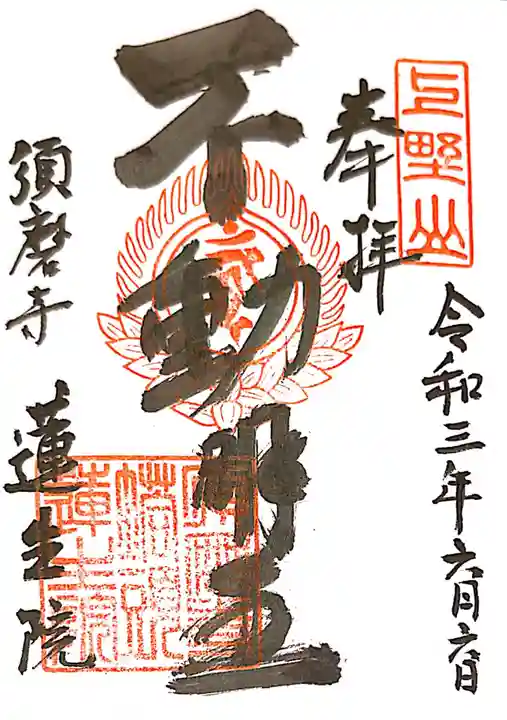 上野山
奉拝
令和三年六月六日
不動明王
須磨寺 蓮生院